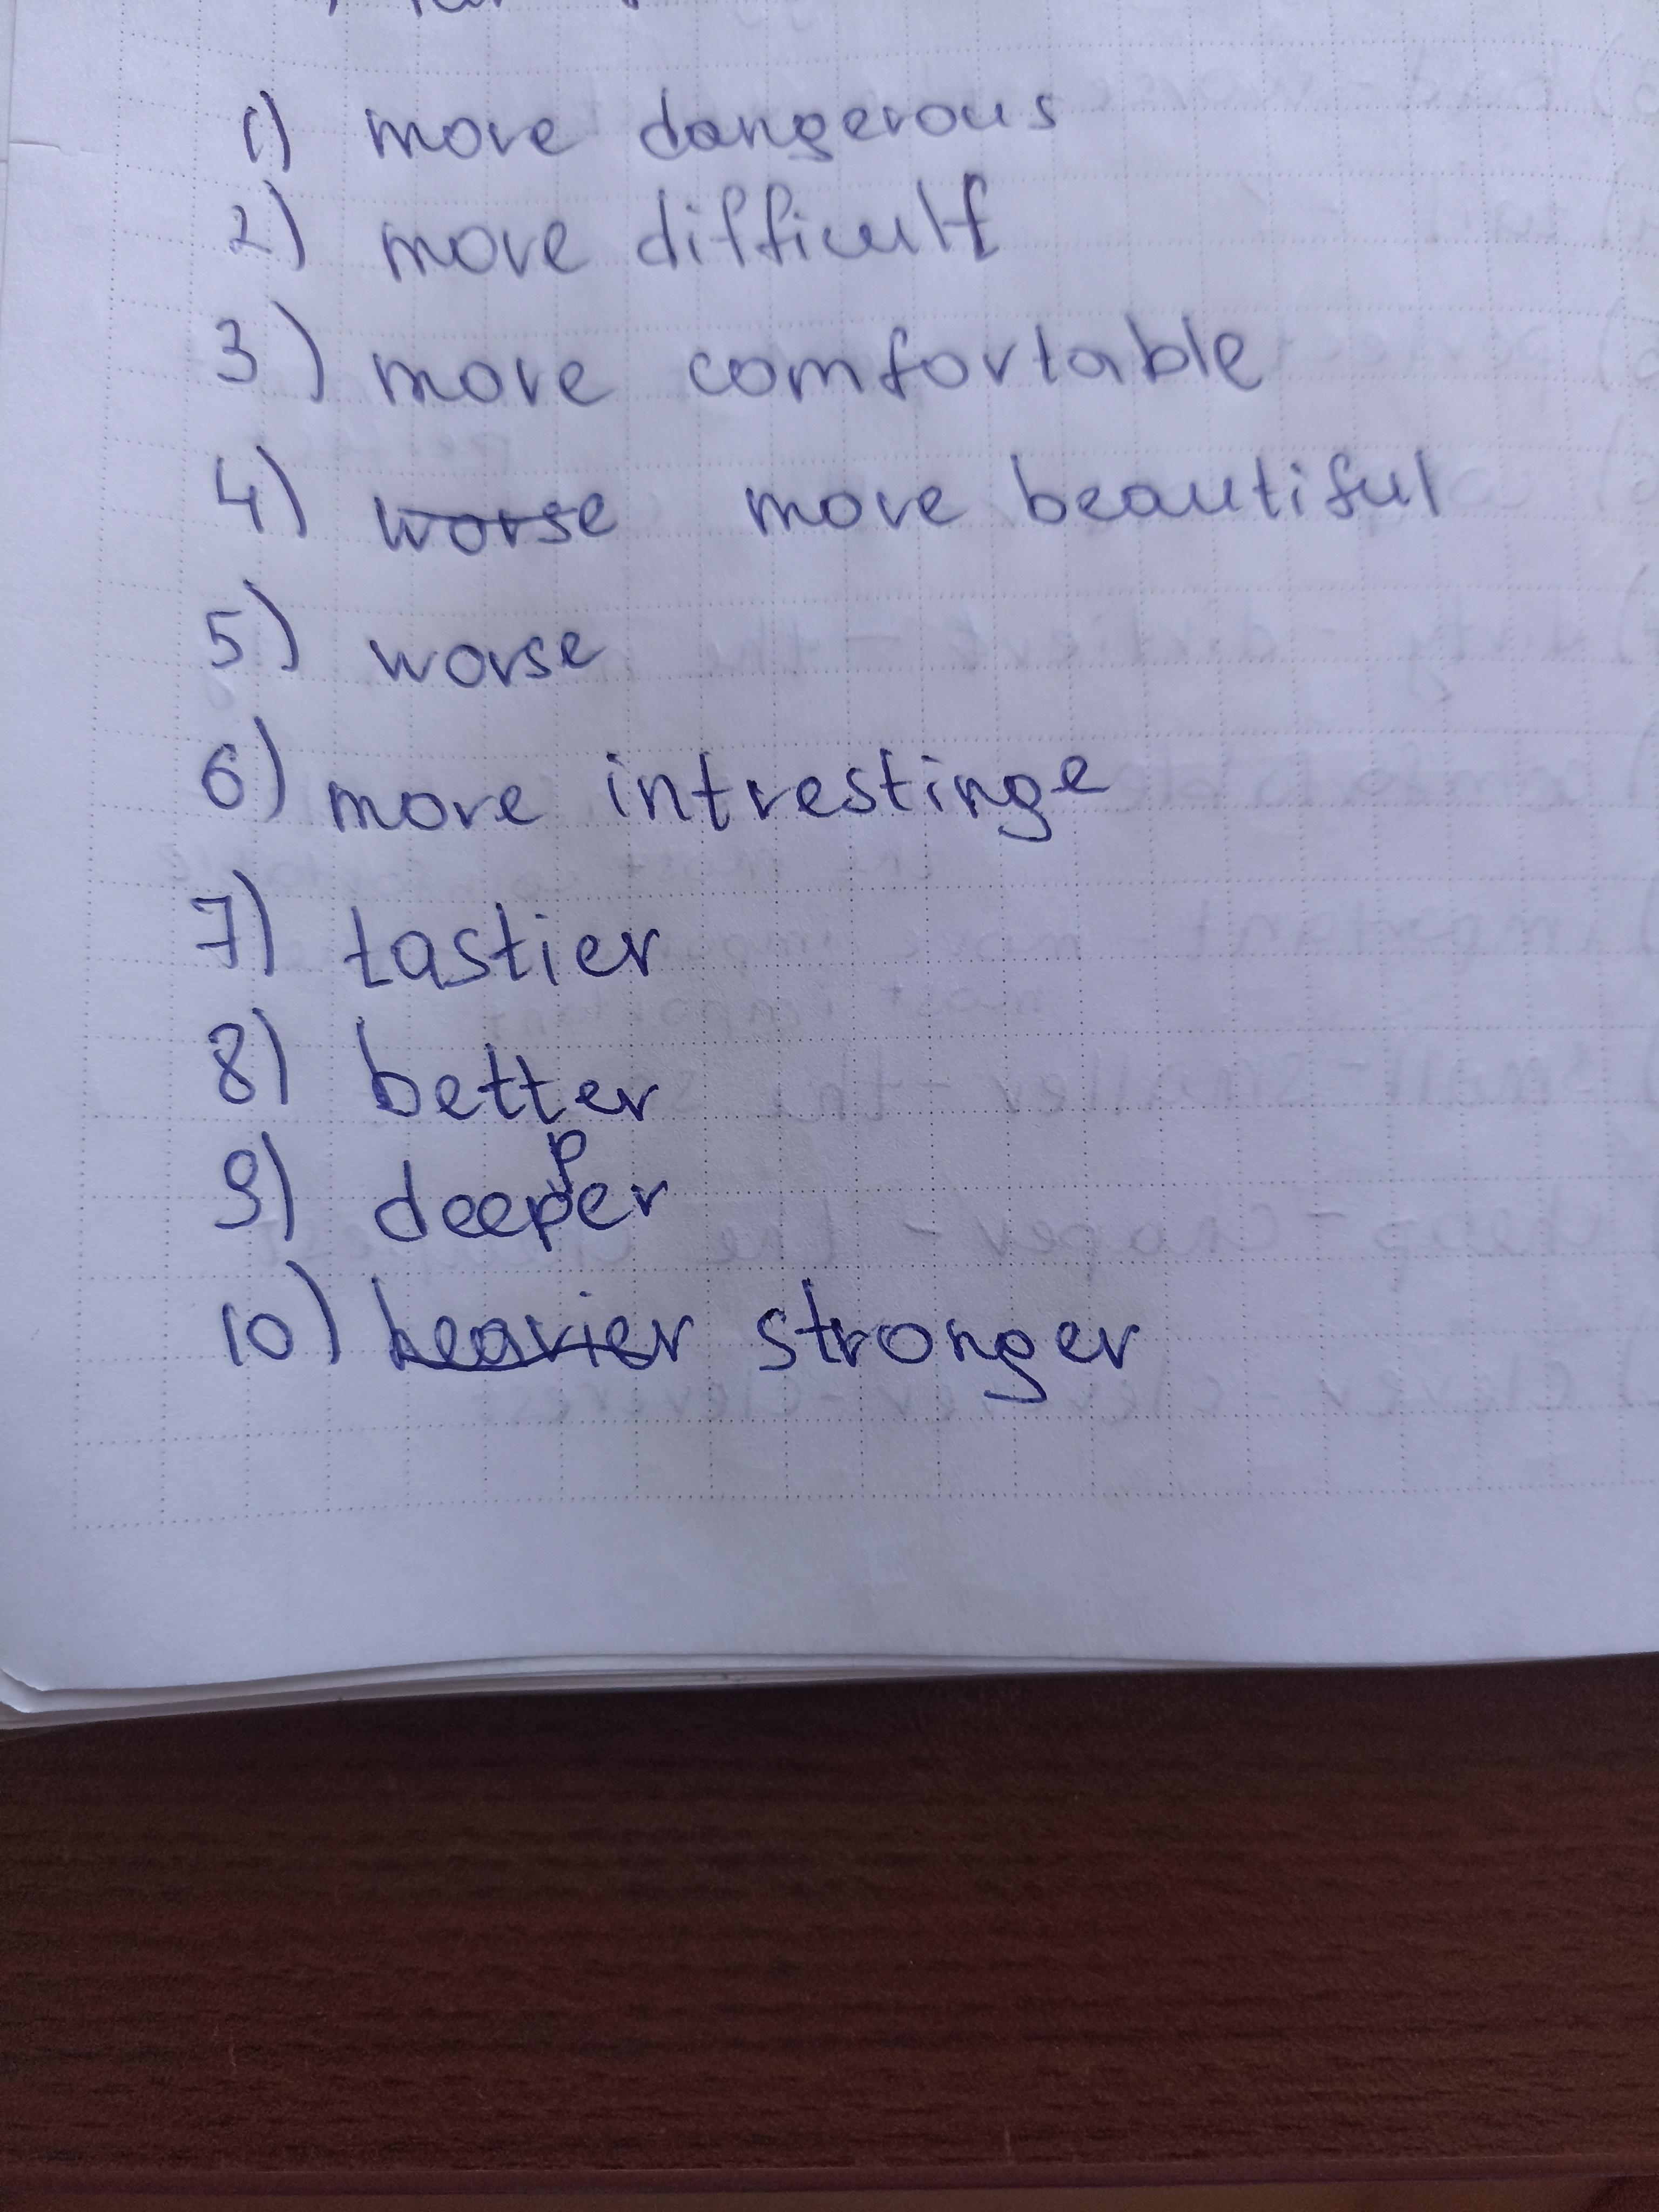 1) more dangerous
2) more difficult
3) more comfortable
4) worse more beautiful
5) worse
6) more intrestinge
7) tastier
8) better
9) deeper
10) heavier stronger